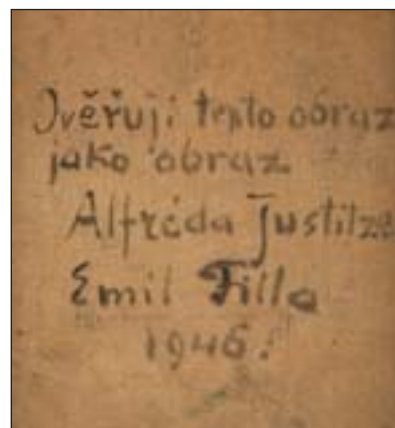 Ověřuji tento obraz
jako obraz
Alfréda Justitze
Emil Filla
1946.